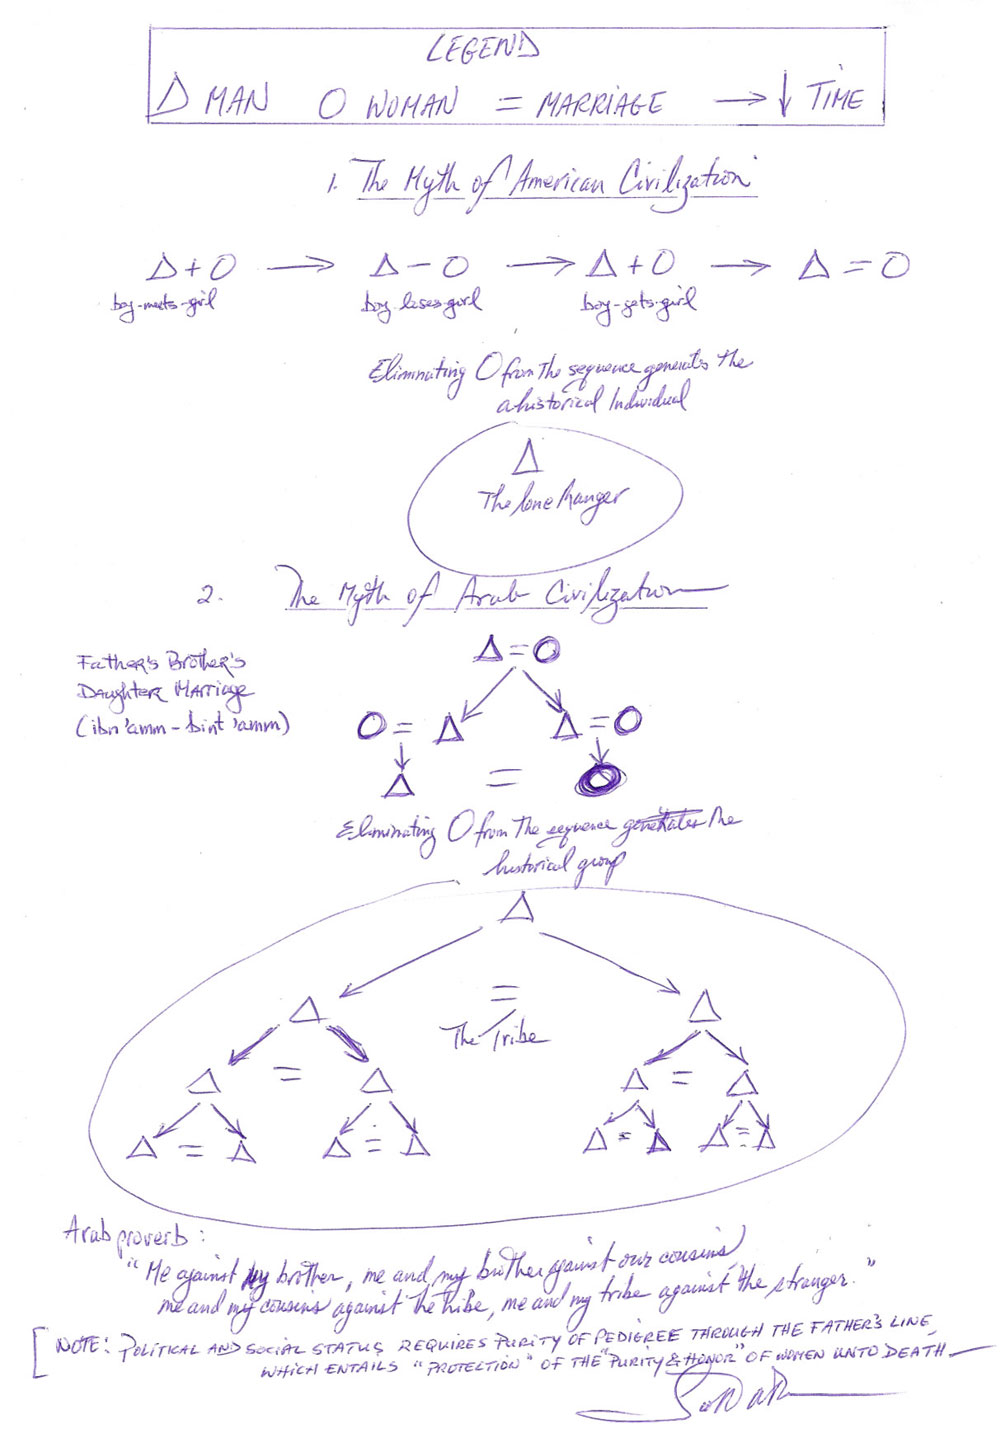 LEGEND
Δ MAN O WOMAN = MARRIAGE → ↓ TIME
1. The Myth of American Civilization
Δ + O → Δ − O → Δ + O → Δ = O
boy-meets-girl boy-loses-girl boy-gets-girl
Eliminating O from the sequence generates the
ahistorical Individual
Δ
The lone Ranger
2. The Myth of Arab Civilization
Δ = O
Father's Brother's
Daughter Marriage
(ibn 'amm - bint 'amm)
O = Δ Δ = O
Δ = O
Eliminating O from the sequence generates the
historical group
Δ
Δ = Δ
The Tribe
Δ = Δ Δ = Δ
Δ = Δ Δ = Δ Δ = Δ Δ = Δ
Arab proverb:
"Me against my brother, me and my brother against our cousins,
me and my cousins against the tribe, me and my tribe against the stranger."
[NOTE: POLITICAL AND SOCIAL STATUS REQUIRES PURITY OF PEDIGREE THROUGH THE FATHER'S LINE,
WHICH ENTAILS "PROTECTION" OF THE "PURITY & HONOR" OF WOMEN UNTO DEATH—